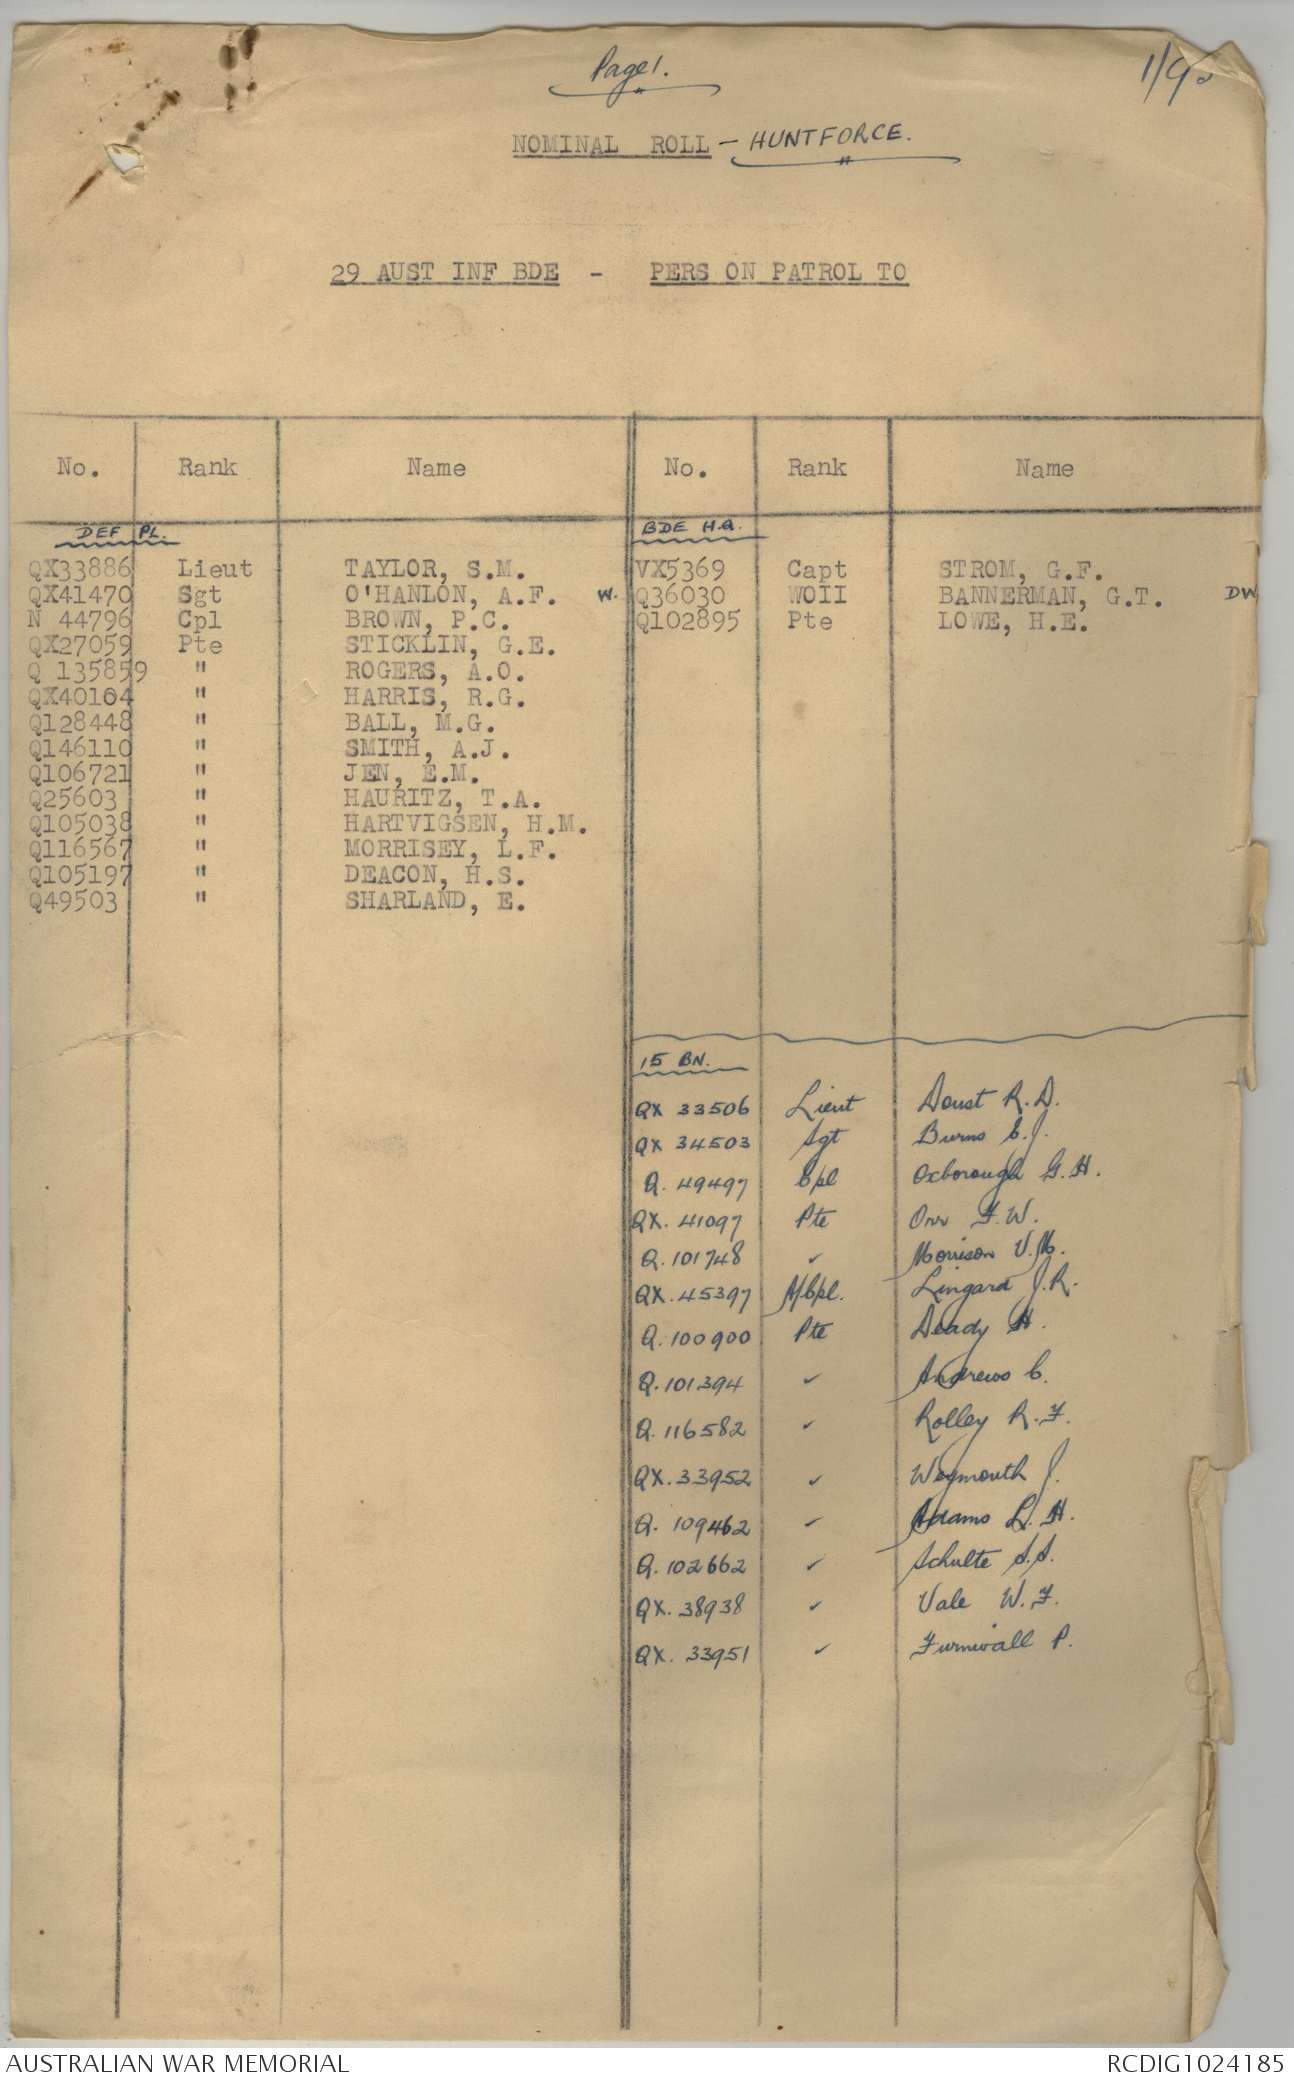 Page 1.
1/90
NOMINAL ROLL - HUNTFORCE.
29 AUST INF BDE - PERS ON PATROL TO
No. Rank Name
DEF PL.
QX33886 Lieut TAYLOR, S.M.
QX41470 Sgt O'HANLON, A.F. W.
N 44796 Cpl BROWN, P.C.
QX27059 Pte STICKLIN, G.E.
Q 135859 " ROGERS, A.O.
QX40164 " HARRIS, R.G.
Q128448 " BALL, M.G.
Q146110 " SMITH, A.J.
Q106721 " JEN, E.M.
Q25603 " HAURITZ, T.A.
Q105038 " HARTVIGSEN, H.M.
Q116567 " MORRISEY, L.F.
Q105197 " DEACON, H.S.
Q49503 " SHARLAND, E.
No. Rank Name
BDE H.Q.
VX5369 Capt STROM, G.F.
Q36030 WOII BANNERMAN, G.T. DW
Q102895 Pte LOWE, H.E.
15 BN.
QX 33506 Lieut Doust R.D.
QX 34503 Sgt Burns C.J.
Q. 49497 Cpl Oxborough G.H.
QX. 41097 Pte Orr F.W.
Q. 101748 " Morrison V.M.
QX. 45397 A/Cpl. Lingard J.R.
Q. 100900 Pte Deady H.
Q. 101394 " Andrews C.
Q. 116582 " Rolley R.F.
QX. 33952 " Weymouth J.
Q. 109462 " Adams L.H.
Q. 102662 " Schulte S.S.
QX. 38938 " Vale W.F.
QX. 33951 " Furnivall P.
AUSTRALIAN WAR MEMORIAL RCDIG1024185